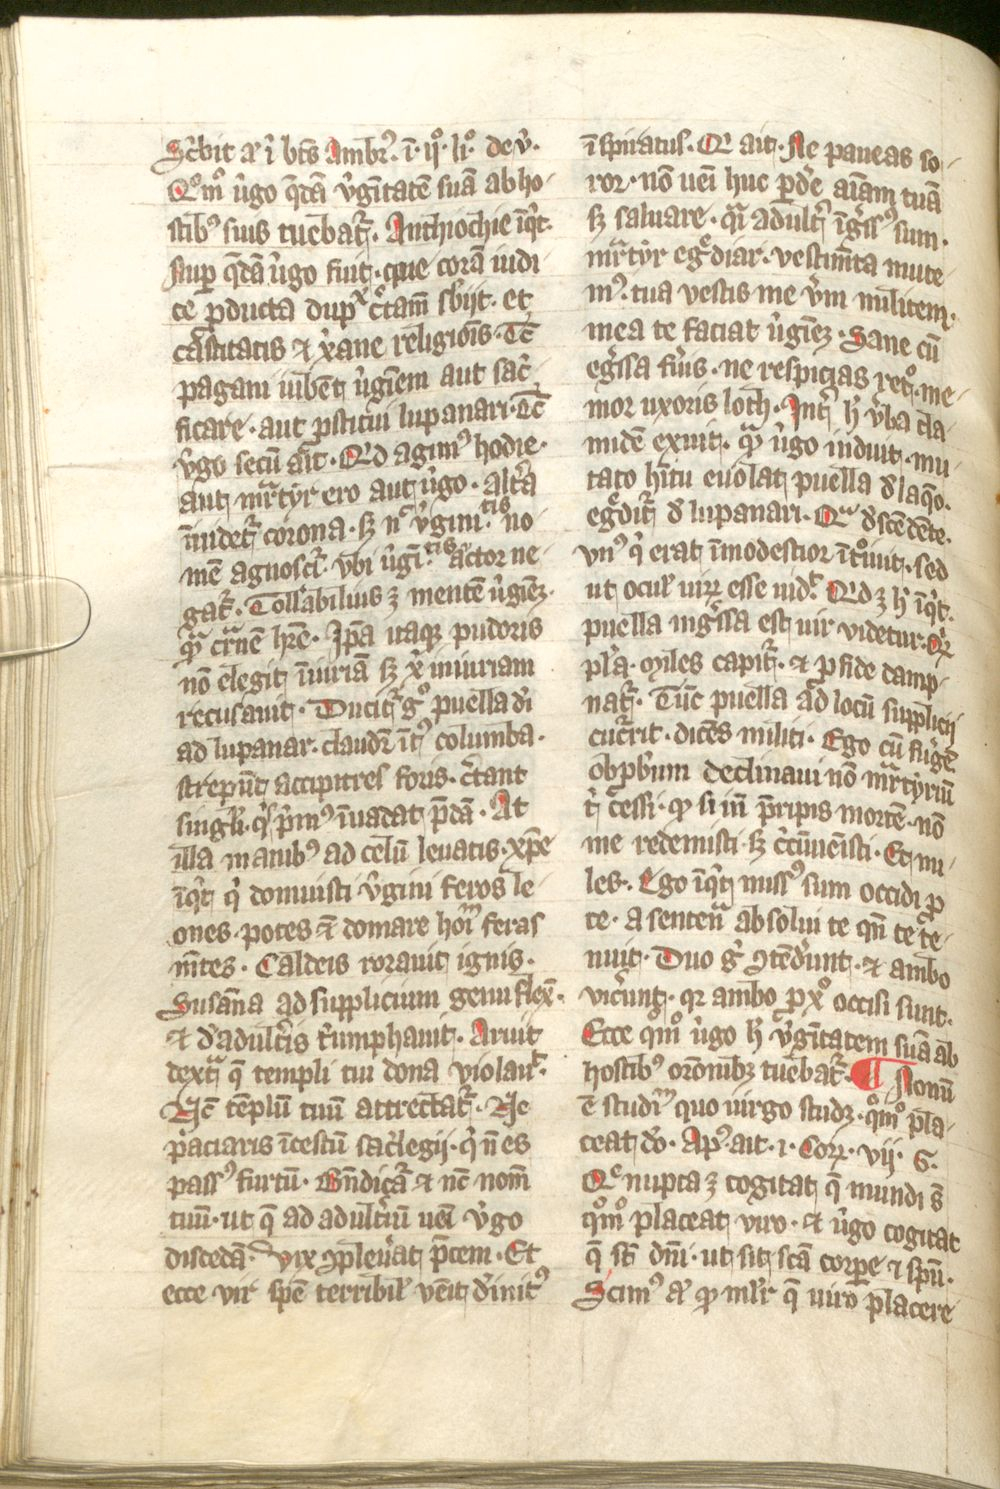 Sc̄bit a᷒ i bt̄s Ambr᷒. i. ij°. li°. de v̄.
Q°m° v̄go q̄dā v̄gītatē suā ab ho-
stib᷒ suis tuebat᷑. Anthiochie īq̇t.
nup̱ q̄dā v̄go fuit. que corā iudi
ce ꝓducta dup̱ c̄tam̄ sb̄ijt. et
castitatis ⁊ xāne religiōis. Tc̄
pagani iubēt v̄giēm aut sac̄
ficare. aut ꝓstitui lupanari. Tc̄
v̄go secū ait. Q̇d agim᷒ hodie.
aut mr̄tyr ero aut v̄go. Alt̄a
īuidet᷑ corona. sꝫ nc̄ v̄gini.tis no-
mē agnosci᷑. vbi v̄gi.tis actor ne-
gat᷑. Toll̄abilius ꝫ mentē v̄giēꝫ.
qᷓ cr̄nē hr̄e. Ip̄a itaqꝫ pudoris
nō elegit īiuriā sꝫ xi iniuriam
recusauit. Ducit᷑ g° puella d̄i
ad lupanar. claudr̄ īt᷒ columba.
strepūt accipitres foris. c̄tant
singl̄i. q̇s p̄m᷒ īuadat p̄dā. At
illa manib᷒ ad celū leuatis. xp̄e
īq̇t q̇ domuisti v̄gini feros le-
ones. potes ⁊ domare hoīm feras
m̄tes. Caldeis rorauit ignis.
Susāna ad supplicium genu flex̄.
⁊ d̄ adult̄is t̄umphauit. Aruit
dextᷓ q̄ templi tui dona violaut᷑.
Nc̄ tēplū tuū attrectat᷑. Ne
paciaris īcestū sac̄legij. q̇ n̄ es
pass᷒ furtū. Bn̄dicat᷑ ⁊ nc̄ nom̄
tuū. ut q̄ ad adult̄iū uēi v̄go
discedā. Vix ꝯpleu̅at p̄cem. Et
ecce vir spē terribil᷒ vēit d̄init᷒
īspiratus. Q̇ ait. Ne paueas so-
ror. nō uēi huc ꝑd̄e aīam tuā
sꝫ saluare. q̄i adult᷑ īg̅ss᷒ sum.
mr̄tyr eg̅diar. vestim̄ta mute-
m᷒. tua vestis me v̄m militem.
mea te faciat v̄giēꝫ. Sane cū
eg̅ssa fu̅is. ne respicias ret°. me-
mor uxoris loth. Int̄ h̄ v̄ba cla-
midē exuit. q̄ v̄go induit. mu-
tato hi̅tu euolat puella d̄ laq̄o.
eg̅dit᷑ d̄ lupanari. Qᷓ d̄scēdēte.
vn᷒ q̇ erat īmodestior īt°iuit. sed
ut ocul᷒ uiꝝ esse uid᷑. Q̇d ꝫ h̄ īq̇t.
puella ing̅ssa est uir videtur. Qͥ
pl̄a. Miles capit᷑. ⁊ ꝓ fide damp-
nat᷑. Tūc puella ad locū supplicij
cuc̄rit. dicēs militi. Ego cū fug̅e
obꝓb̅um declinaui nō mr̄tyriū
t̄ cessi. q̇ si in̄ p̄ripis mortē. nō
me redemisti. sꝫ c̄cūuēisti. Et mi-
les. Ego īq̇t miss᷒ sum occidi ꝓ
te. a senten̄a absolui te qn̄ te te-
nuit. Duo g° ꝯtēd̄unt. ⁊ ambo
vic̄unt. qꝛ ambo ꝓ xo occisi sunt.
Ecce qm° v̄go h̄ v̄gītatem suā ab
hostib᷒ om̄ibꝫ tuebat᷑. ¶ Nonū
ē studi᷒ quo uirgo studꝫ. q°m° pla-
ceat d̄o. Ap᷒ ait. i. Coꝝ. vij. G.
Q̄ nupta ꝫ cogitat q̄ mundi s̄
q°m° placeat viro. ⁊ v̄go cogitat
q̄ st̄ dn̄i. ut sit sc̄a corpe ⁊ spū.
Scim᷒ a᷒ q̇ ml̄r q̄ uiro placere